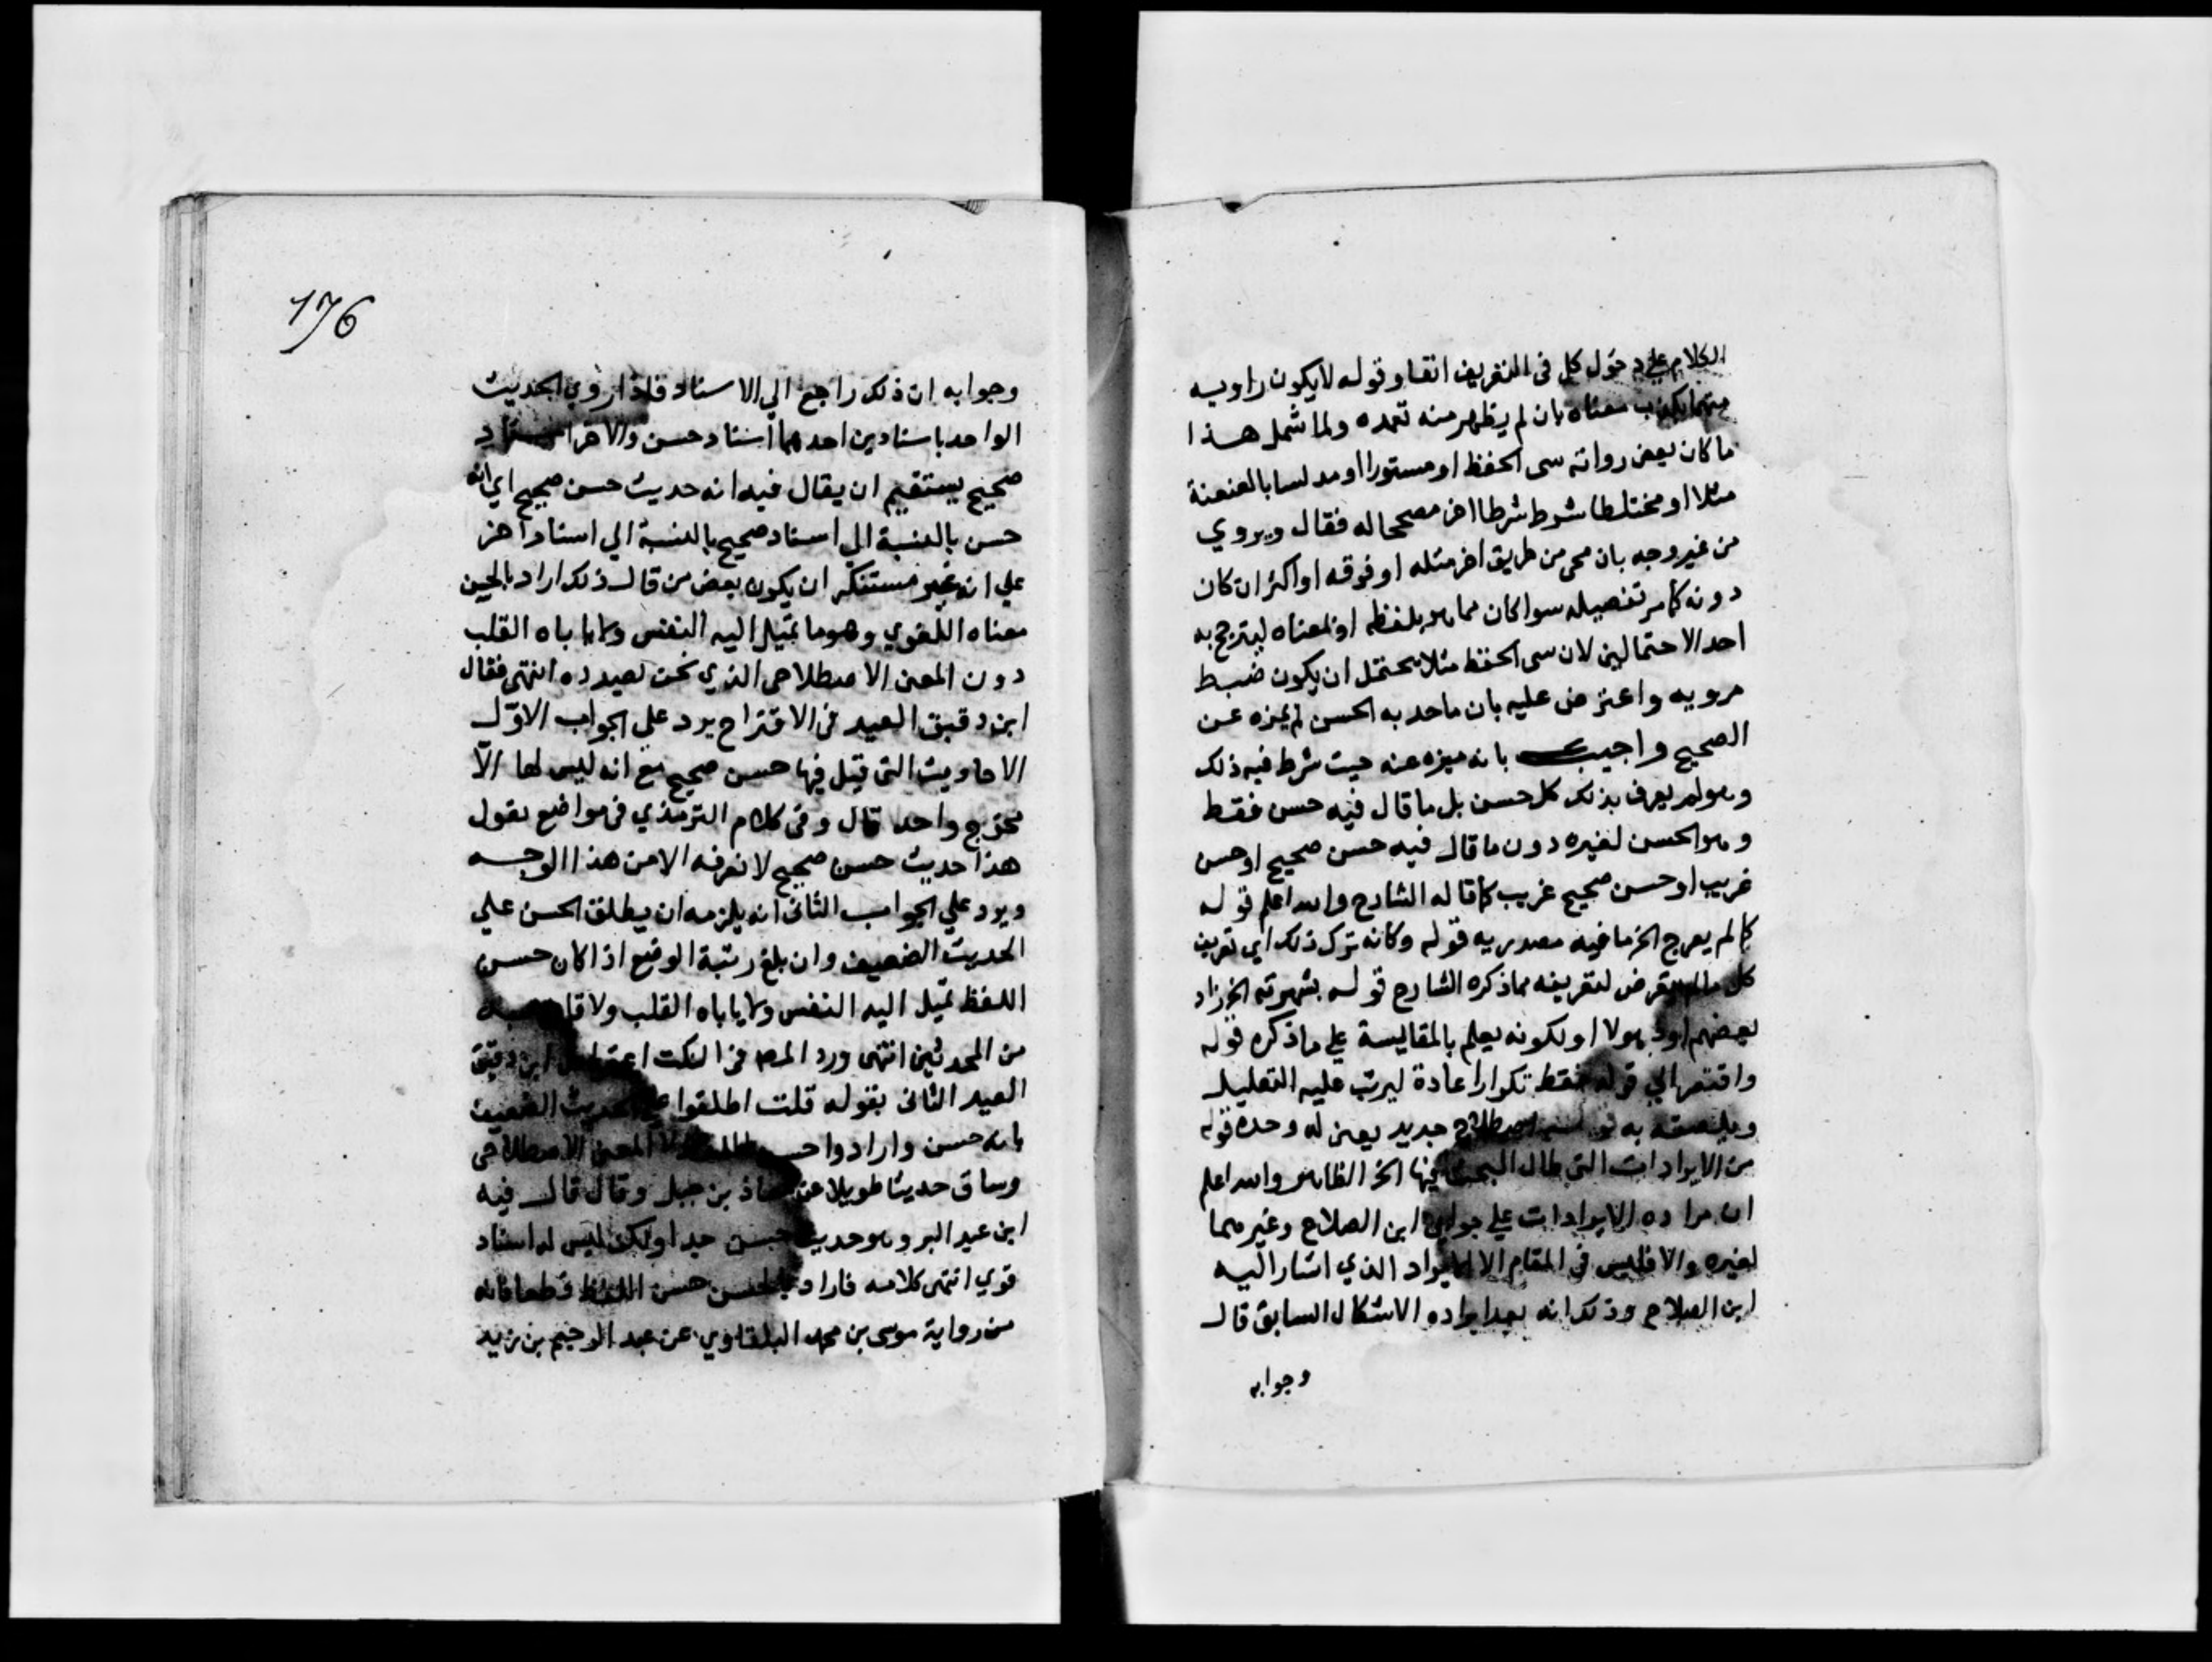 الكلام على دخول كل في التعريف انفا وقوله لا يكون راويه
متهما بكذب معناه بان لم يظهر منه تعمده ولما شمل هذا
ما كان بعض رواته سى الحفظ او مستورا او مدلسا بالعنعنة
مثلا او مختلطا شرط شرطا اخر مصححا له فقال ويروي
من غير وجه بان مجى من طريق اخر مثله او فوقه او اكثر ان كان
دونه كما مر تفصيله سوا كان مما هو بلفظه او بمعناه ليترجح به
احد الاحتمالين لان سى الحفظ مثلا يحتمل ان يكون ضبط
مرويه واعترض عليه بان ما حد به الحسن لم يميزه عن
الصحيح واجيب بانه ميزه عنه حيث شرط فيه ذلك
وهو لم يعرف بذلك كل حسن بل ما قال فيه حسن فقط
وهو الحسن لغيره دون ما قال فيه حسن صحيح او حسن
غريب او حسن صحيح غريب كما قاله الشارح والله اعلم قوله
كما لم يعرج الخ ما فيه مصدريه قوله وكانه ترك ذلك اي تعريف
كل ما لم يتعرض لتعريفه مما ذكره الشارح قوله بشهرته الخ زاد
بعضهم او ذهولا او لكونه يعلم بالمقايسة على ما ذكره قوله
واقتصر الي قوله فقط تكرار اعادة ليرتب عليه التعليل
به اصطلاح جديد يعني له وحده قوله
من الايرادات التي طال البحث فيها الخ الظاهر والله اعلم
ان مراده الايرادات على جوابي ابن الصلاح وغيرهما
لغيره والا فليس في المقام الا الايراد الذي اشار اليه
ابن الصلاح وذلك انه بعد ايراده الاشكال السابق قال
وجوابه
176
وجوابه ان ذلك راجع الي الاسناد فاذا روي الحديث
الواحد باسنادين احدهما اسناد حسن والاخر اسناد
صحيح يستقيم ان يقال فيه انه حديث حسن صحيح اي انه
حسن بالنسبة الي اسناد صحيح بالنسبة الي اسناد اخر
علي انه غير مستنكر ان يكون بعض من قال ذلك اراد بالحسن
معناه اللغوي وهو ما تميل اليه النفس ولا ياباه القلب
دون المعنى الاصطلاحي الذي نحن بصدده انتهى فقال
ابن دقيق العيد في الاقتراح يرد علي الجواب الاوّل
الاحاديث التي قيل فيها حسن صحيح مع انه ليس لها الاّ
مخرج واحد قال وفي كلام الترمذي في مواضع يقول
هذا حديث حسن صحيح لا نعرفه الا من هذا الوجه
ويرد علي الجواب الثاني انه يلزمه ان يطلق الحسن علي
الحديث الضعيف وان بلغ رتبة الوضع اذا كان حسن
اللفظ تميل اليه النفس ولا ياباه القلب ولا قايل به
من المحدثين انتهى ورد المصـ في النكت اعتراض ابن دقيق
العيد الثاني بقوله قلت اطلقوا علي الحديث الضعيف
بانه حسن وارادوا حسن اللفظ لا المعنى الاصطلاحي
وساق حديثا طويلا عن معاذ بن جبل وقال قال فيه
ابن عبد البر وهو حديث حسن جيدا ولكن ليس له اسناد
قوي انتهى كلامه فاراد بالحسن حسن اللفظ قطعا فانه
من رواية موسى بن محمد البلقاوي عن عبد الرحيم بن زيد